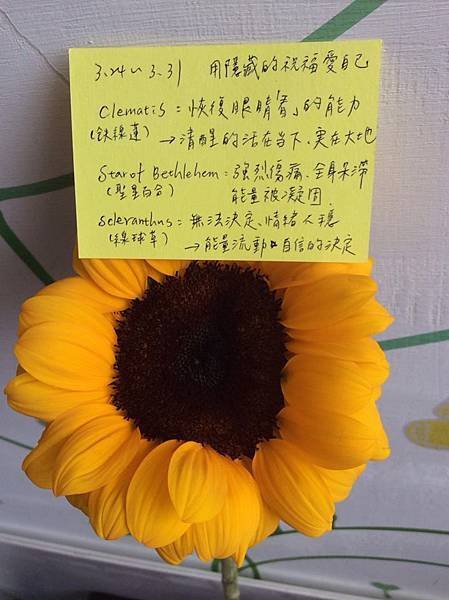 3.24~3.31 用隱藏的祝福愛自己
Clematis = 恢復眼睛「看」的能力
(鐵線蓮) → 清醒的活在當下、實在大地
Star of Bethlehem = 強烈傷痛、全身呆滯
(聖星百合) 能量被凝固.
Scleranthus = 無法決定、情緒不穩
(線球草) → 能量流動 自信的決定